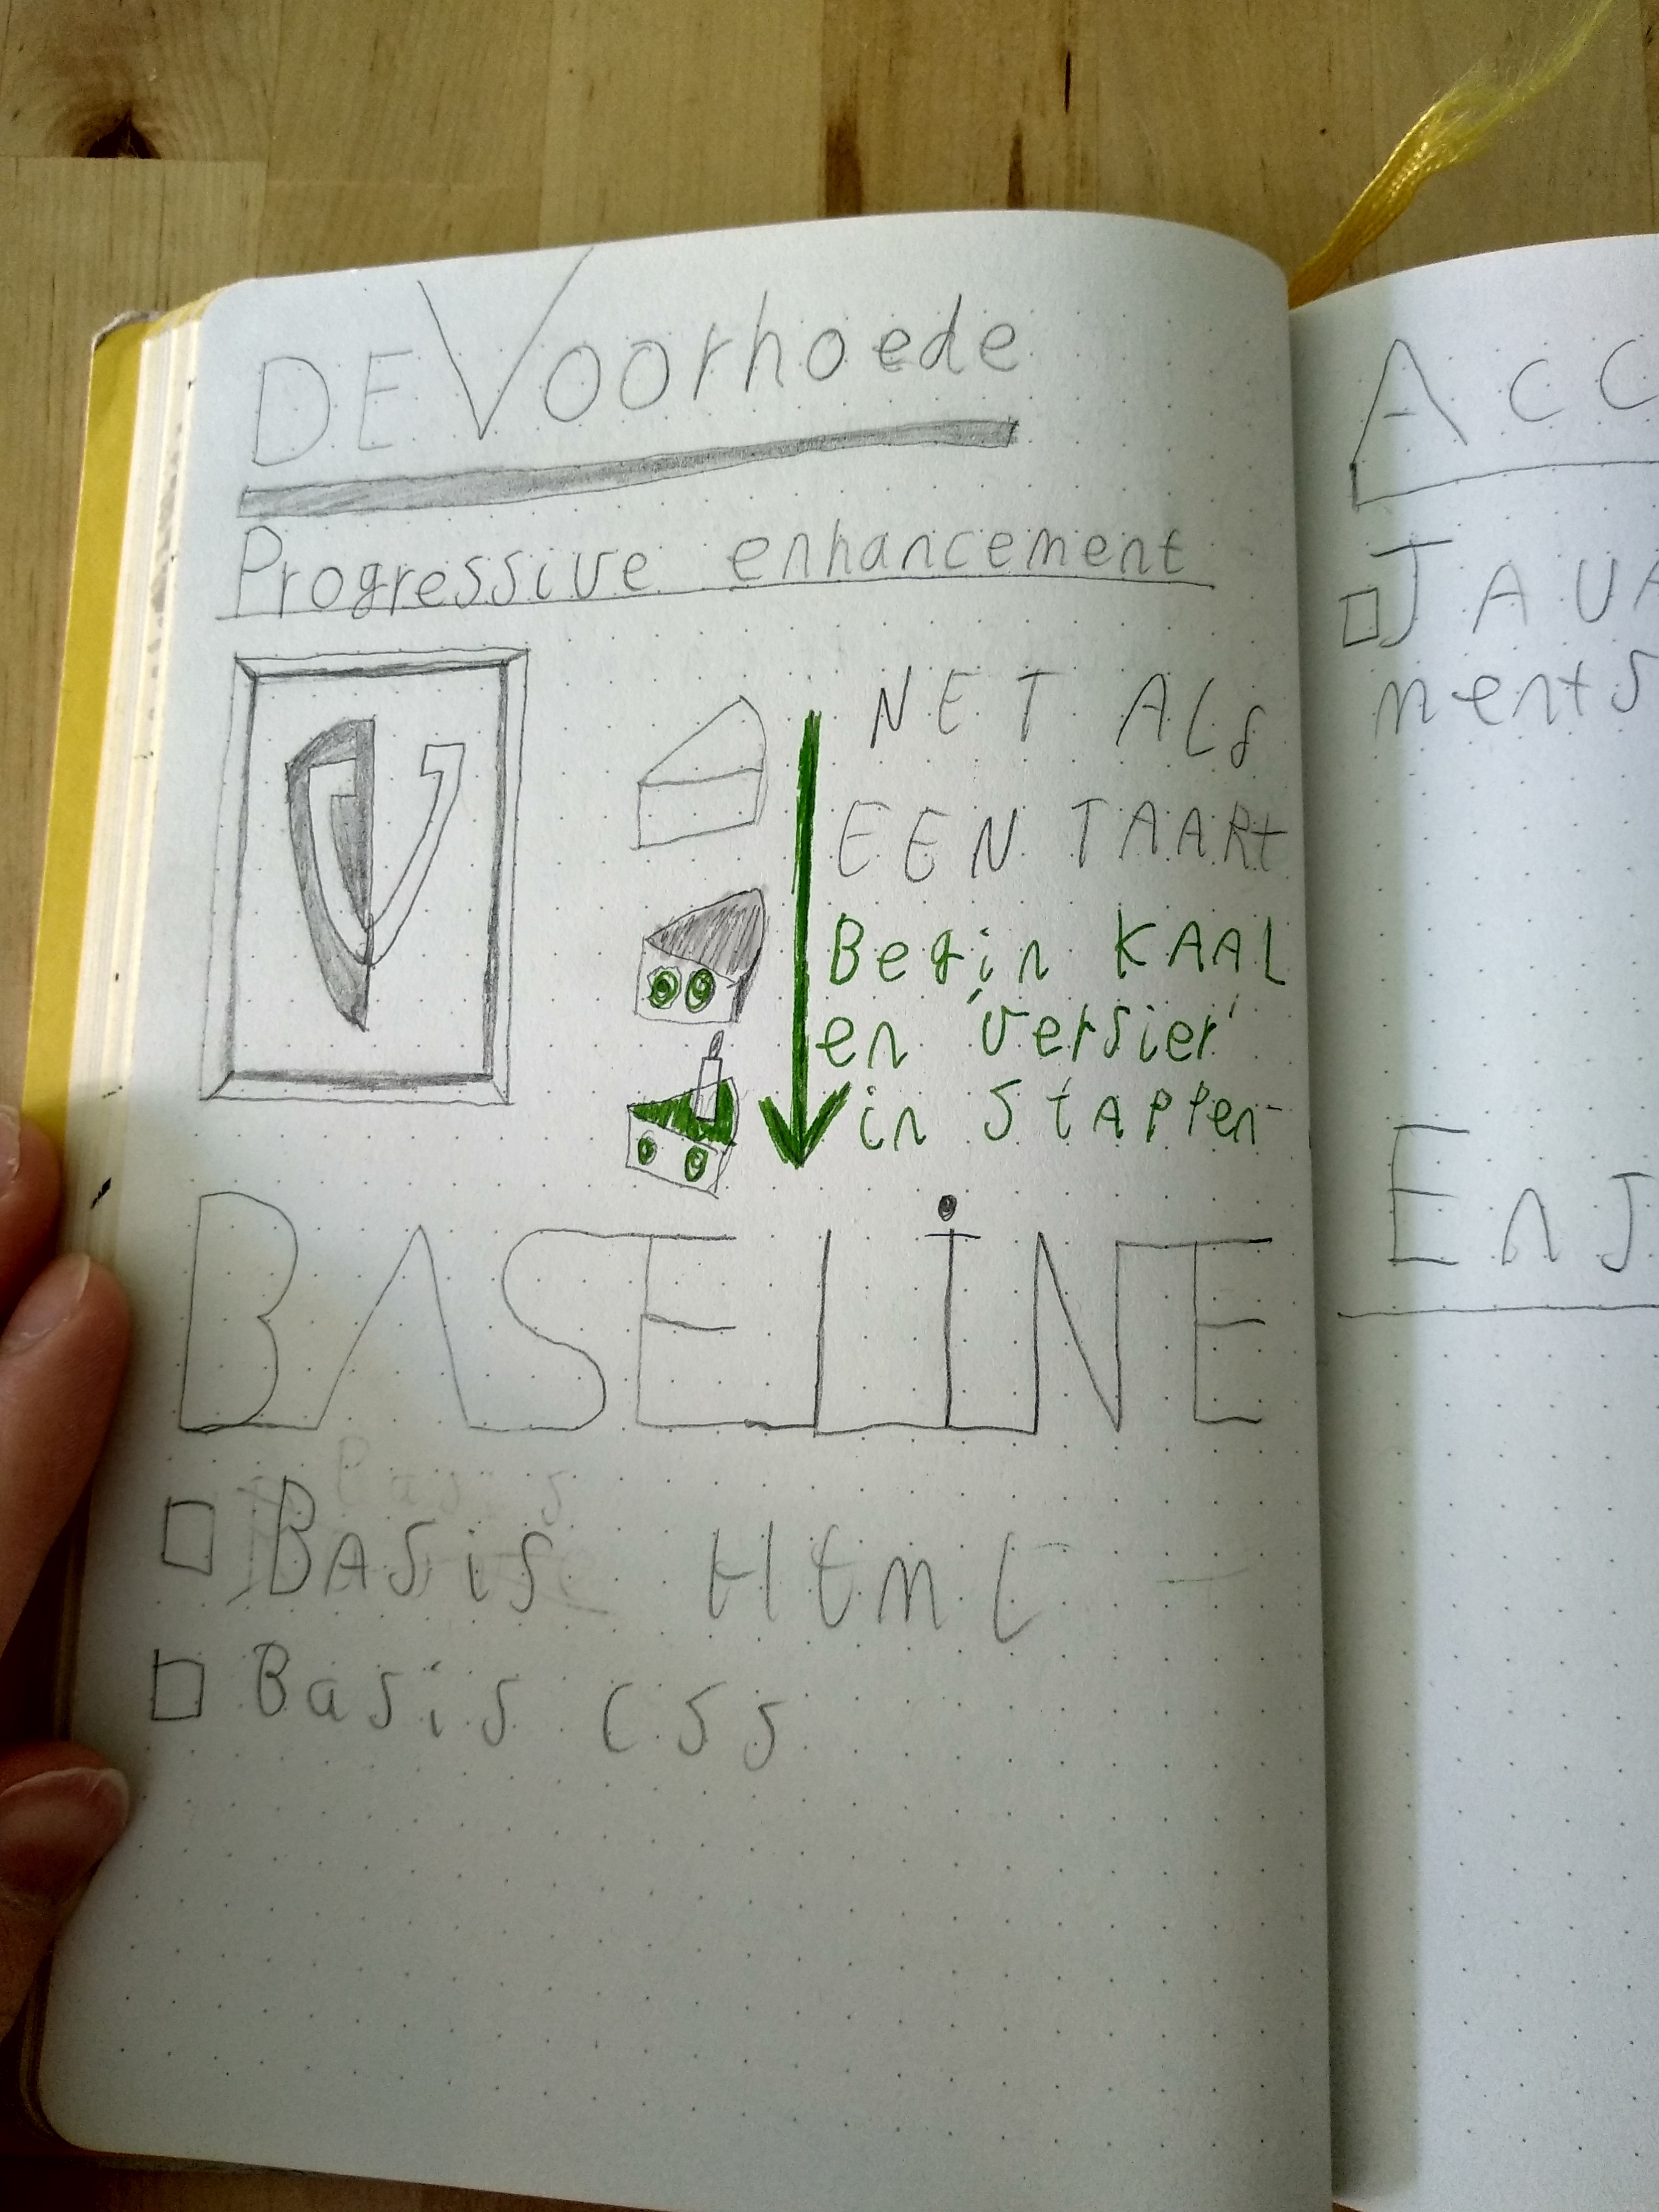 DE Voorhoede
Progressive enhancement
NET ALS
EEN TAART
Begin KAAL
en 'versier'
in STAPPen
BASELINE
BASiS HtmL
Basis CSS
ACC
JAVA
ments
EnJ